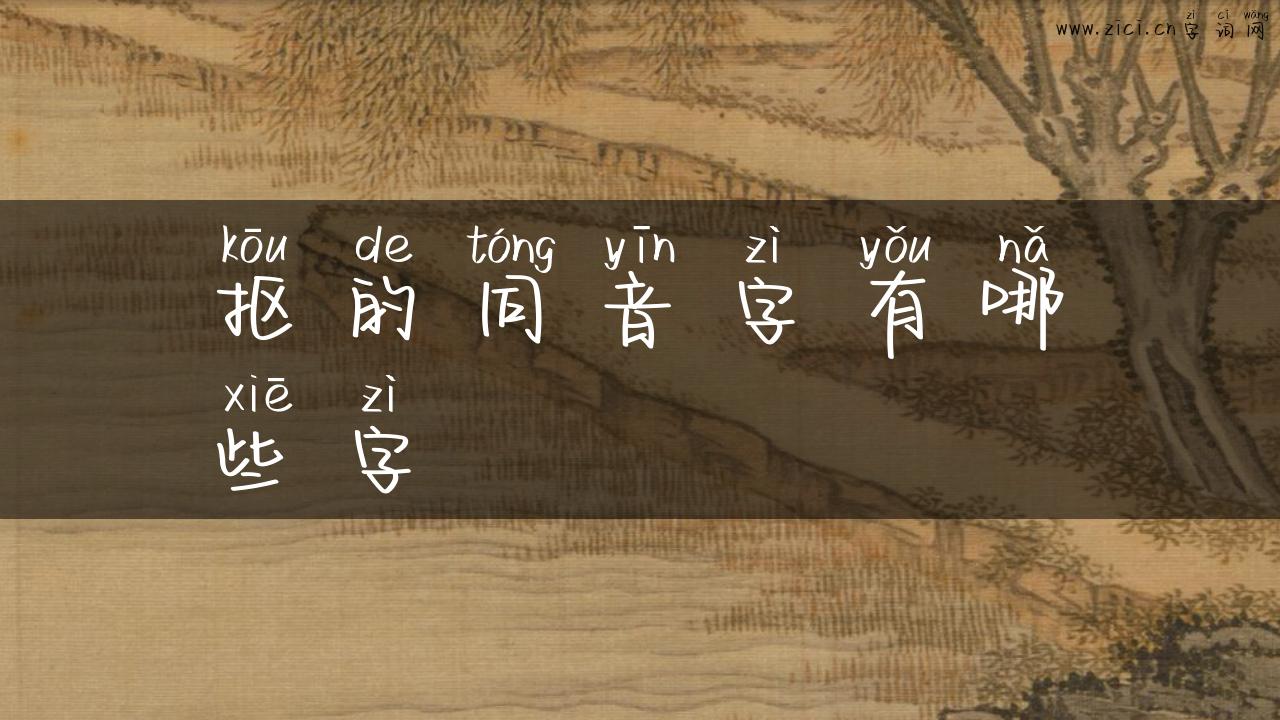 zì cí wǎng
www.zici.cn字词网
kōu de tóng yīn zì yǒu nǎ
抠的同音字有哪
xiē zì
些字